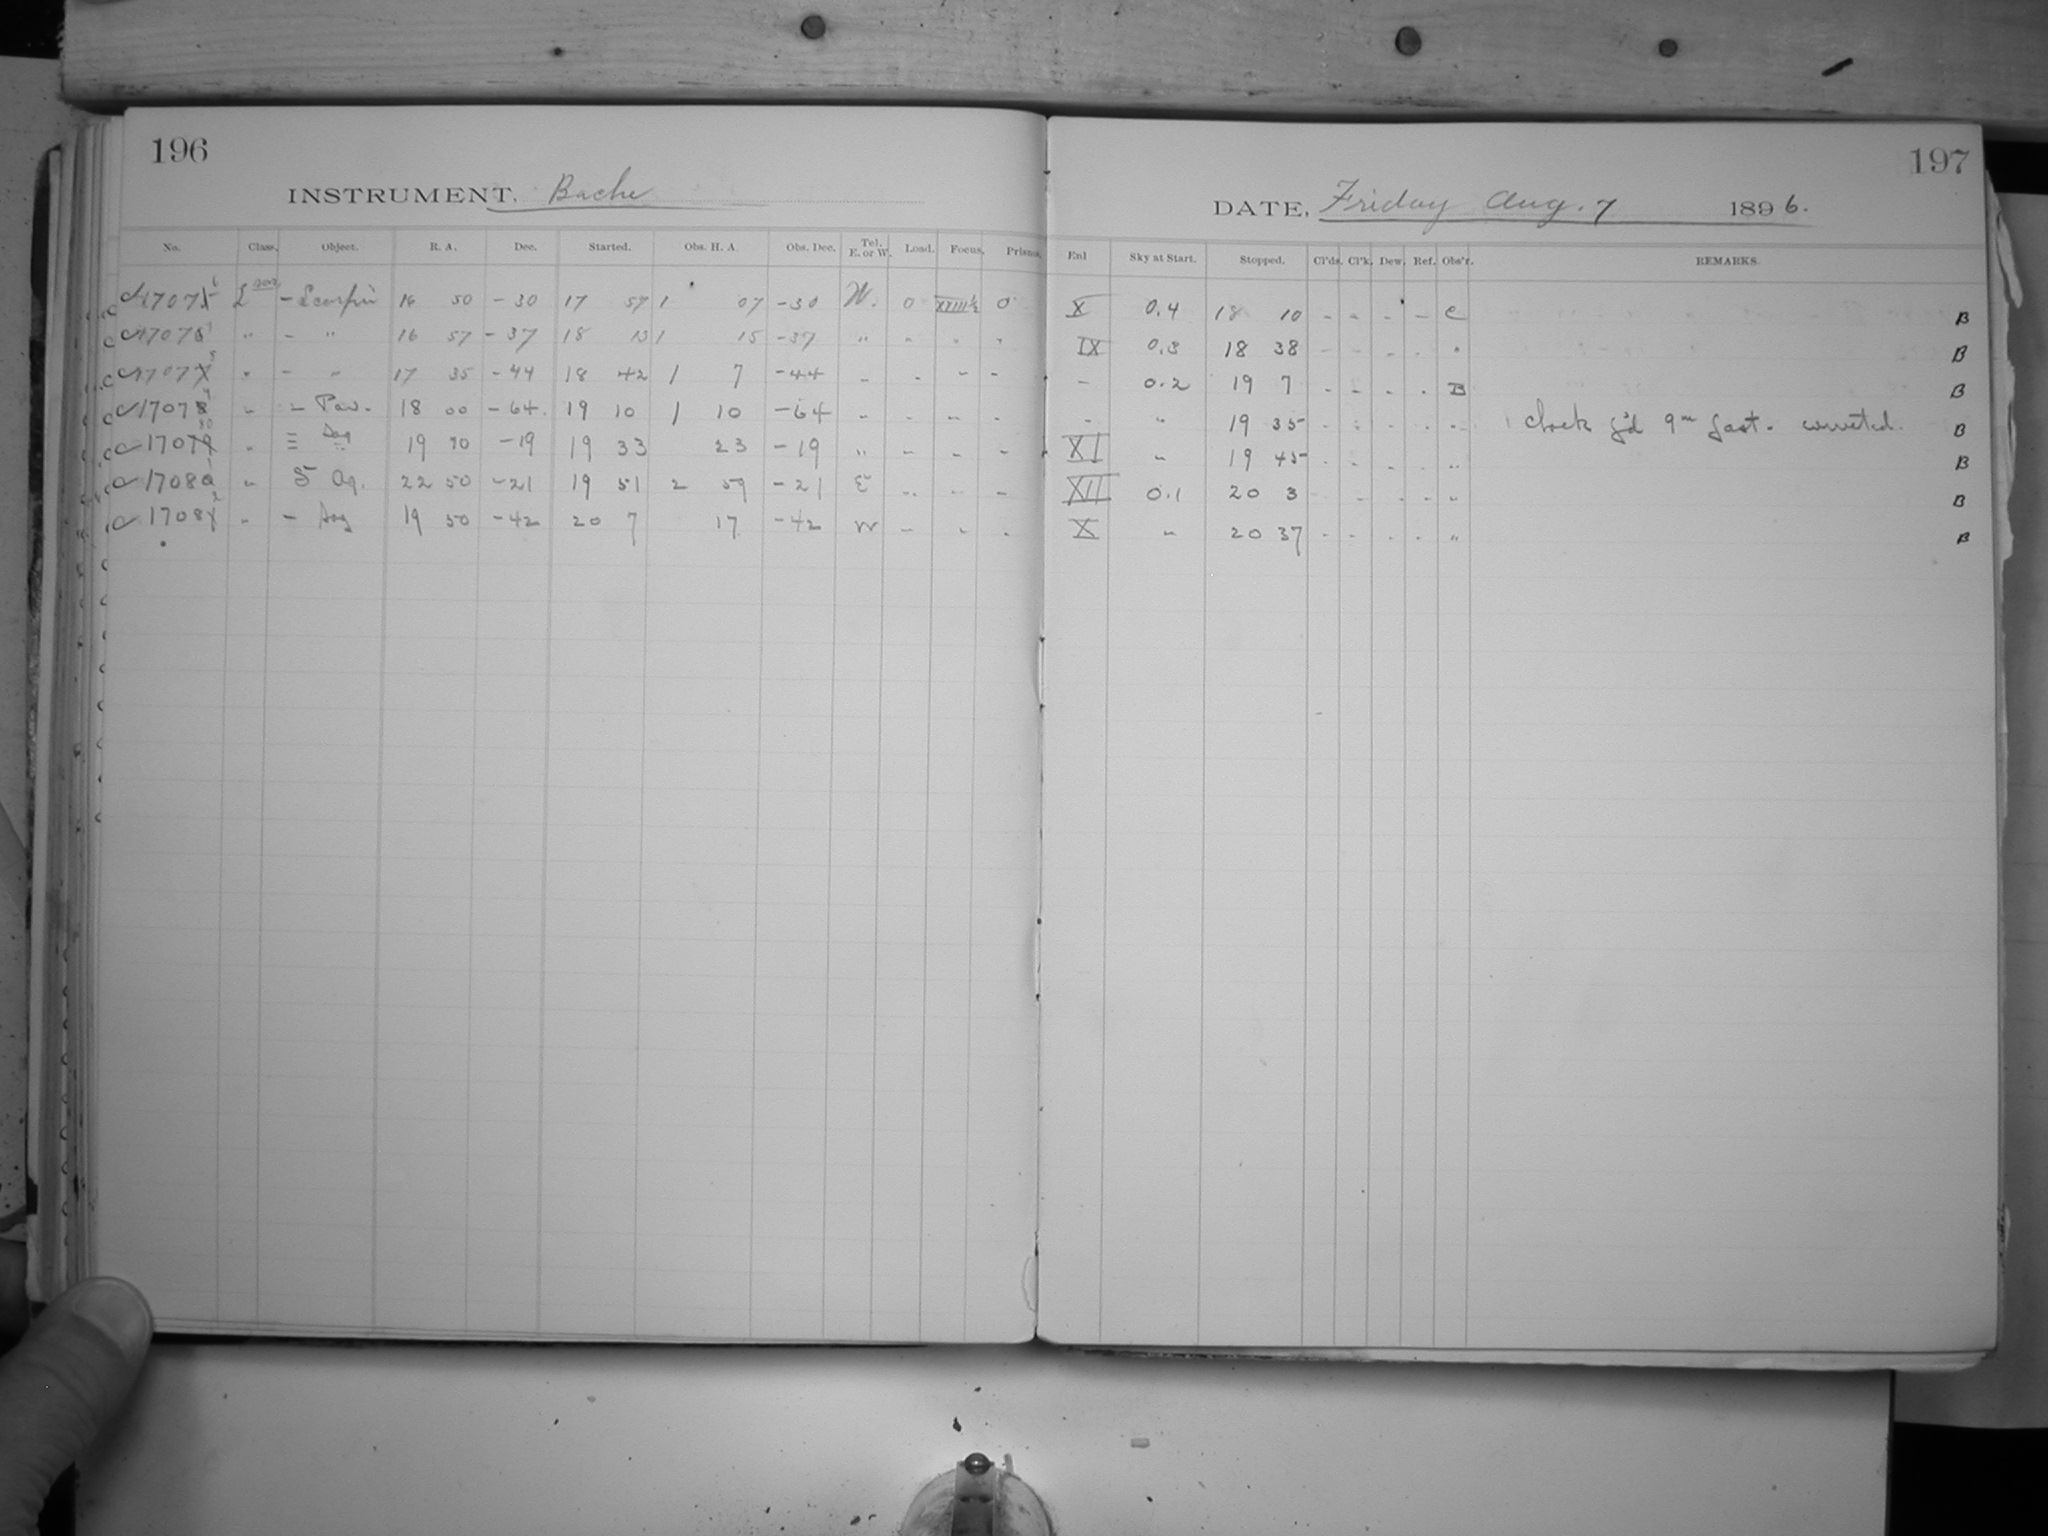 196
197
INSTRUMENT, Bache
DATE, Friday Aug. 7 1896.
No. Class. Object. R. A. Dec. Started. Obs. H. A. Obs. Dec. Tel. E. or W. Load. Focus. Prisms. Enl Sky at Start. Stopped. Cl'ds. Cl'k. Dew. Ref. Obs'r. REMARKS.
17076 L - Scorpii 16 50 -30 17 57 1 07 -30 W. 0 XXIII½ 0 X 0.4 18 10 - - - - C B
17077 " - " 16 57 -37 18 13 1 15 -37 " " " " IX 0.3 18 38 - - - - " B
17078 " - " 17 35 -44 18 42 1 7 -44 " " " " - 0.2 19 7 - - - - B B
17079 " - Pav. 18 00 -64 19 10 1 10 -64 " " " " - " 19 35 - - - - " clock g'd 9m fast. corrected. B
17080 " 19 10 -19 19 33 23 -19 " " " " XI " 19 45 - - - - " B
17081 " 5 Aq. 22 50 -21 19 51 2 59 -21 E " " " XII 0.1 20 3 - - - - " B
17082 " - Sag 19 50 -42 20 7 17 -42 W " " " X " 20 37 - - - - " B